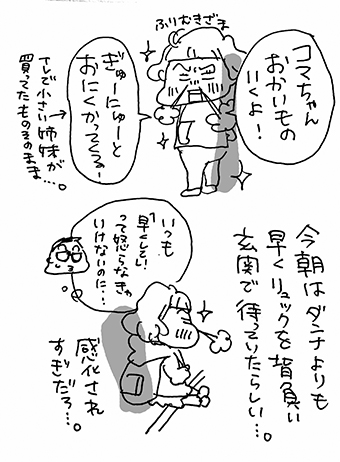 ふりむきざま
コマちゃん
おかいもの
いくよ！
ぎゅーにゅーと
おにくかってくる！
→
テレビで小さい姉妹が
買ってたものそのまま…。
今朝はダンナよりも
早くリュックを背負い
玄関で待っていたらしい…。
いつも
「早くして！」
って怒らなきゃ
いけないのに…
感化され
すぎだろ…。